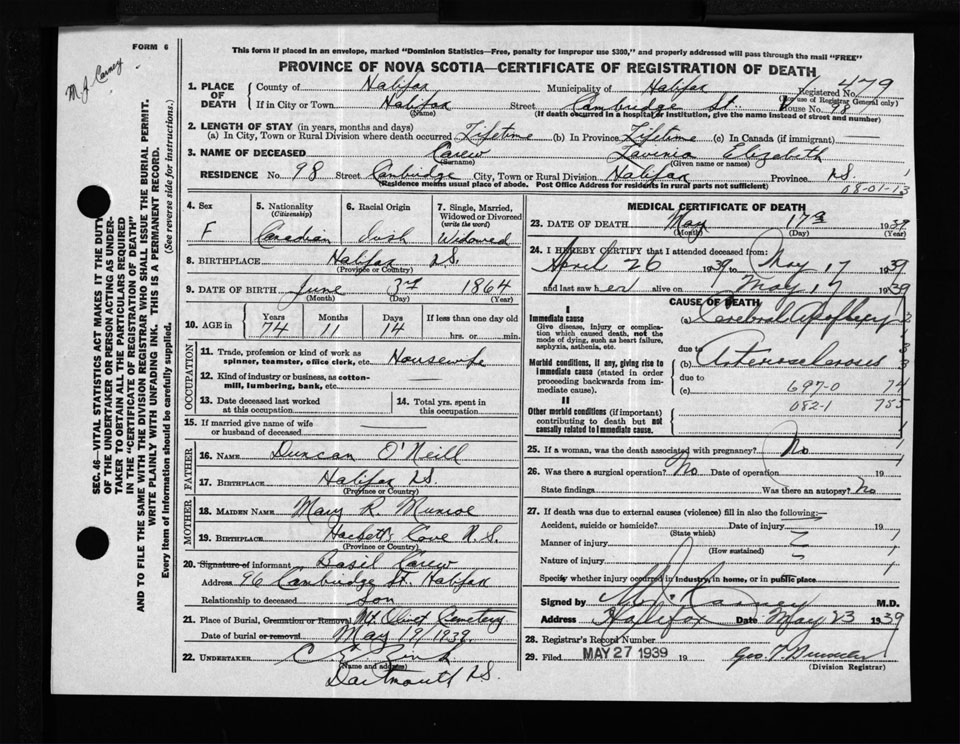 FORM 6
M J Carney
This form if placed in an envelope, marked "Dominion Statistics—Free, penalty for improper use $300," and properly addressed will pass through the mail "FREE"
PROVINCE OF NOVA SCOTIA—CERTIFICATE OF REGISTRATION OF DEATH
SEC. 46—VITAL STATISTICS ACT MAKES IT THE DUTY
OF THE UNDERTAKER OR PERSON ACTING AS UNDER-
TAKER TO OBTAIN ALL THE PARTICULARS REQUIRED
IN THE "CERTIFICATE OF REGISTRATION OF DEATH"
AND TO FILE THE SAME WITH THE DIVISION REGISTRAR WHO SHALL ISSUE THE BURIAL PERMIT.
WRITE PLAINLY WITH UNFADING INK. THIS IS A PERMANENT RECORD.
Every item of Information should be carefully supplied. (See reverse side for instructions.)
1. PLACE OF DEATH County of Halifax Municipality of Halifax Registered No. 479
(For use of Registrar General only)
If in City or Town Halifax Street Cambridge St. House No. 98
(Name) (If death occurred in a hospital or institution, give the name instead of street and number)
2. LENGTH OF STAY (in years, months and days)
(a) In City, Town or Rural Division where death occurred Lifetime (b) In Province Lifetime (c) In Canada (if immigrant)
3. NAME OF DECEASED Carew Lavinia Elizabeth
(Surname) (Given name or names)
RESIDENCE No. 98 Street Cambridge City, Town or Rural Division Halifax Province N.S.
(Residence means usual place of abode. Post Office Address for residents in rural parts not sufficient)
08-01-13
4. Sex F
5. Nationality (Citizenship) Canadian
6. Racial Origin Irish
7. Single, Married, Widowed or Divorced (write the word) Widowed
8. BIRTHPLACE Halifax N.S.
(Province or Country)
9. DATE OF BIRTH June 3rd 1864
(Month) (Day) (Year)
10. AGE in Years 74 Months 11 Days 14 If less than one day old hrs. or min.
OCCUPATION
11. Trade, profession or kind of work as spinner, teamster, office clerk, etc. Housewife
12. Kind of industry or business, as cotton-mill, lumbering, bank, etc. —
13. Date deceased last worked at this occupation
14. Total yrs. spent in this occupation
15. If married give name of wife or husband of deceased
FATHER
16. Name Duncan O'Neill
17. Birthplace Halifax N.S.
(Province or Country)
MOTHER
18. Maiden Name Mary R. Munroe
19. Birthplace Hackett's Cove N.S.
(Province or Country)
20. Signature of informant Basil Carew
Address 96 Cambridge St. Halifax
Relationship to deceased Son
21. Place of Burial, Cremation or Removal Mt. Olivet Cemetery
Date of burial or removal May 19/1939.
22. UNDERTAKER C
(Name and address)
Dartmouth N.S.
MEDICAL CERTIFICATE OF DEATH
23. DATE OF DEATH May 17th 1939
(Month) (Day) (Year)
24. I HEREBY CERTIFY that I attended deceased from
April 26 1939 to May 17 1939
and last saw her alive on May 17 1939
CAUSE OF DEATH
I
Immediate cause
Give disease, injury or complication which caused death, not the mode of dying, such as heart failure, asphyxia, asthenia, etc.
(a) Cerebral Apoplexy
due to
Morbid conditions, if any, giving rise to immediate cause (stated in order proceeding backwards from immediate cause).
(b) Arteriosclerosis
due to
(c) 697-0 74
082-1 755
II
Other morbid conditions (if important) contributing to death but not causally related to immediate cause.
25. If a woman, was the death associated with pregnancy? No
26. Was there a surgical operation? No Date of operation 19
State findings Was there an autopsy? No
27. If death was due to external causes (violence) fill in also the following:—
Accident, suicide or homicide? Date of injury 19
(State which)
Manner of injury
(How sustained)
Nature of injury
Specify whether injury occurred in industry, in home, or in public place
Signed by M. J. Carney M.D.
Address Halifax Date May 23 1939
28. Registrar's Record Number
29. Filed MAY 27 1939 19 Geo. T.
(Division Registrar)